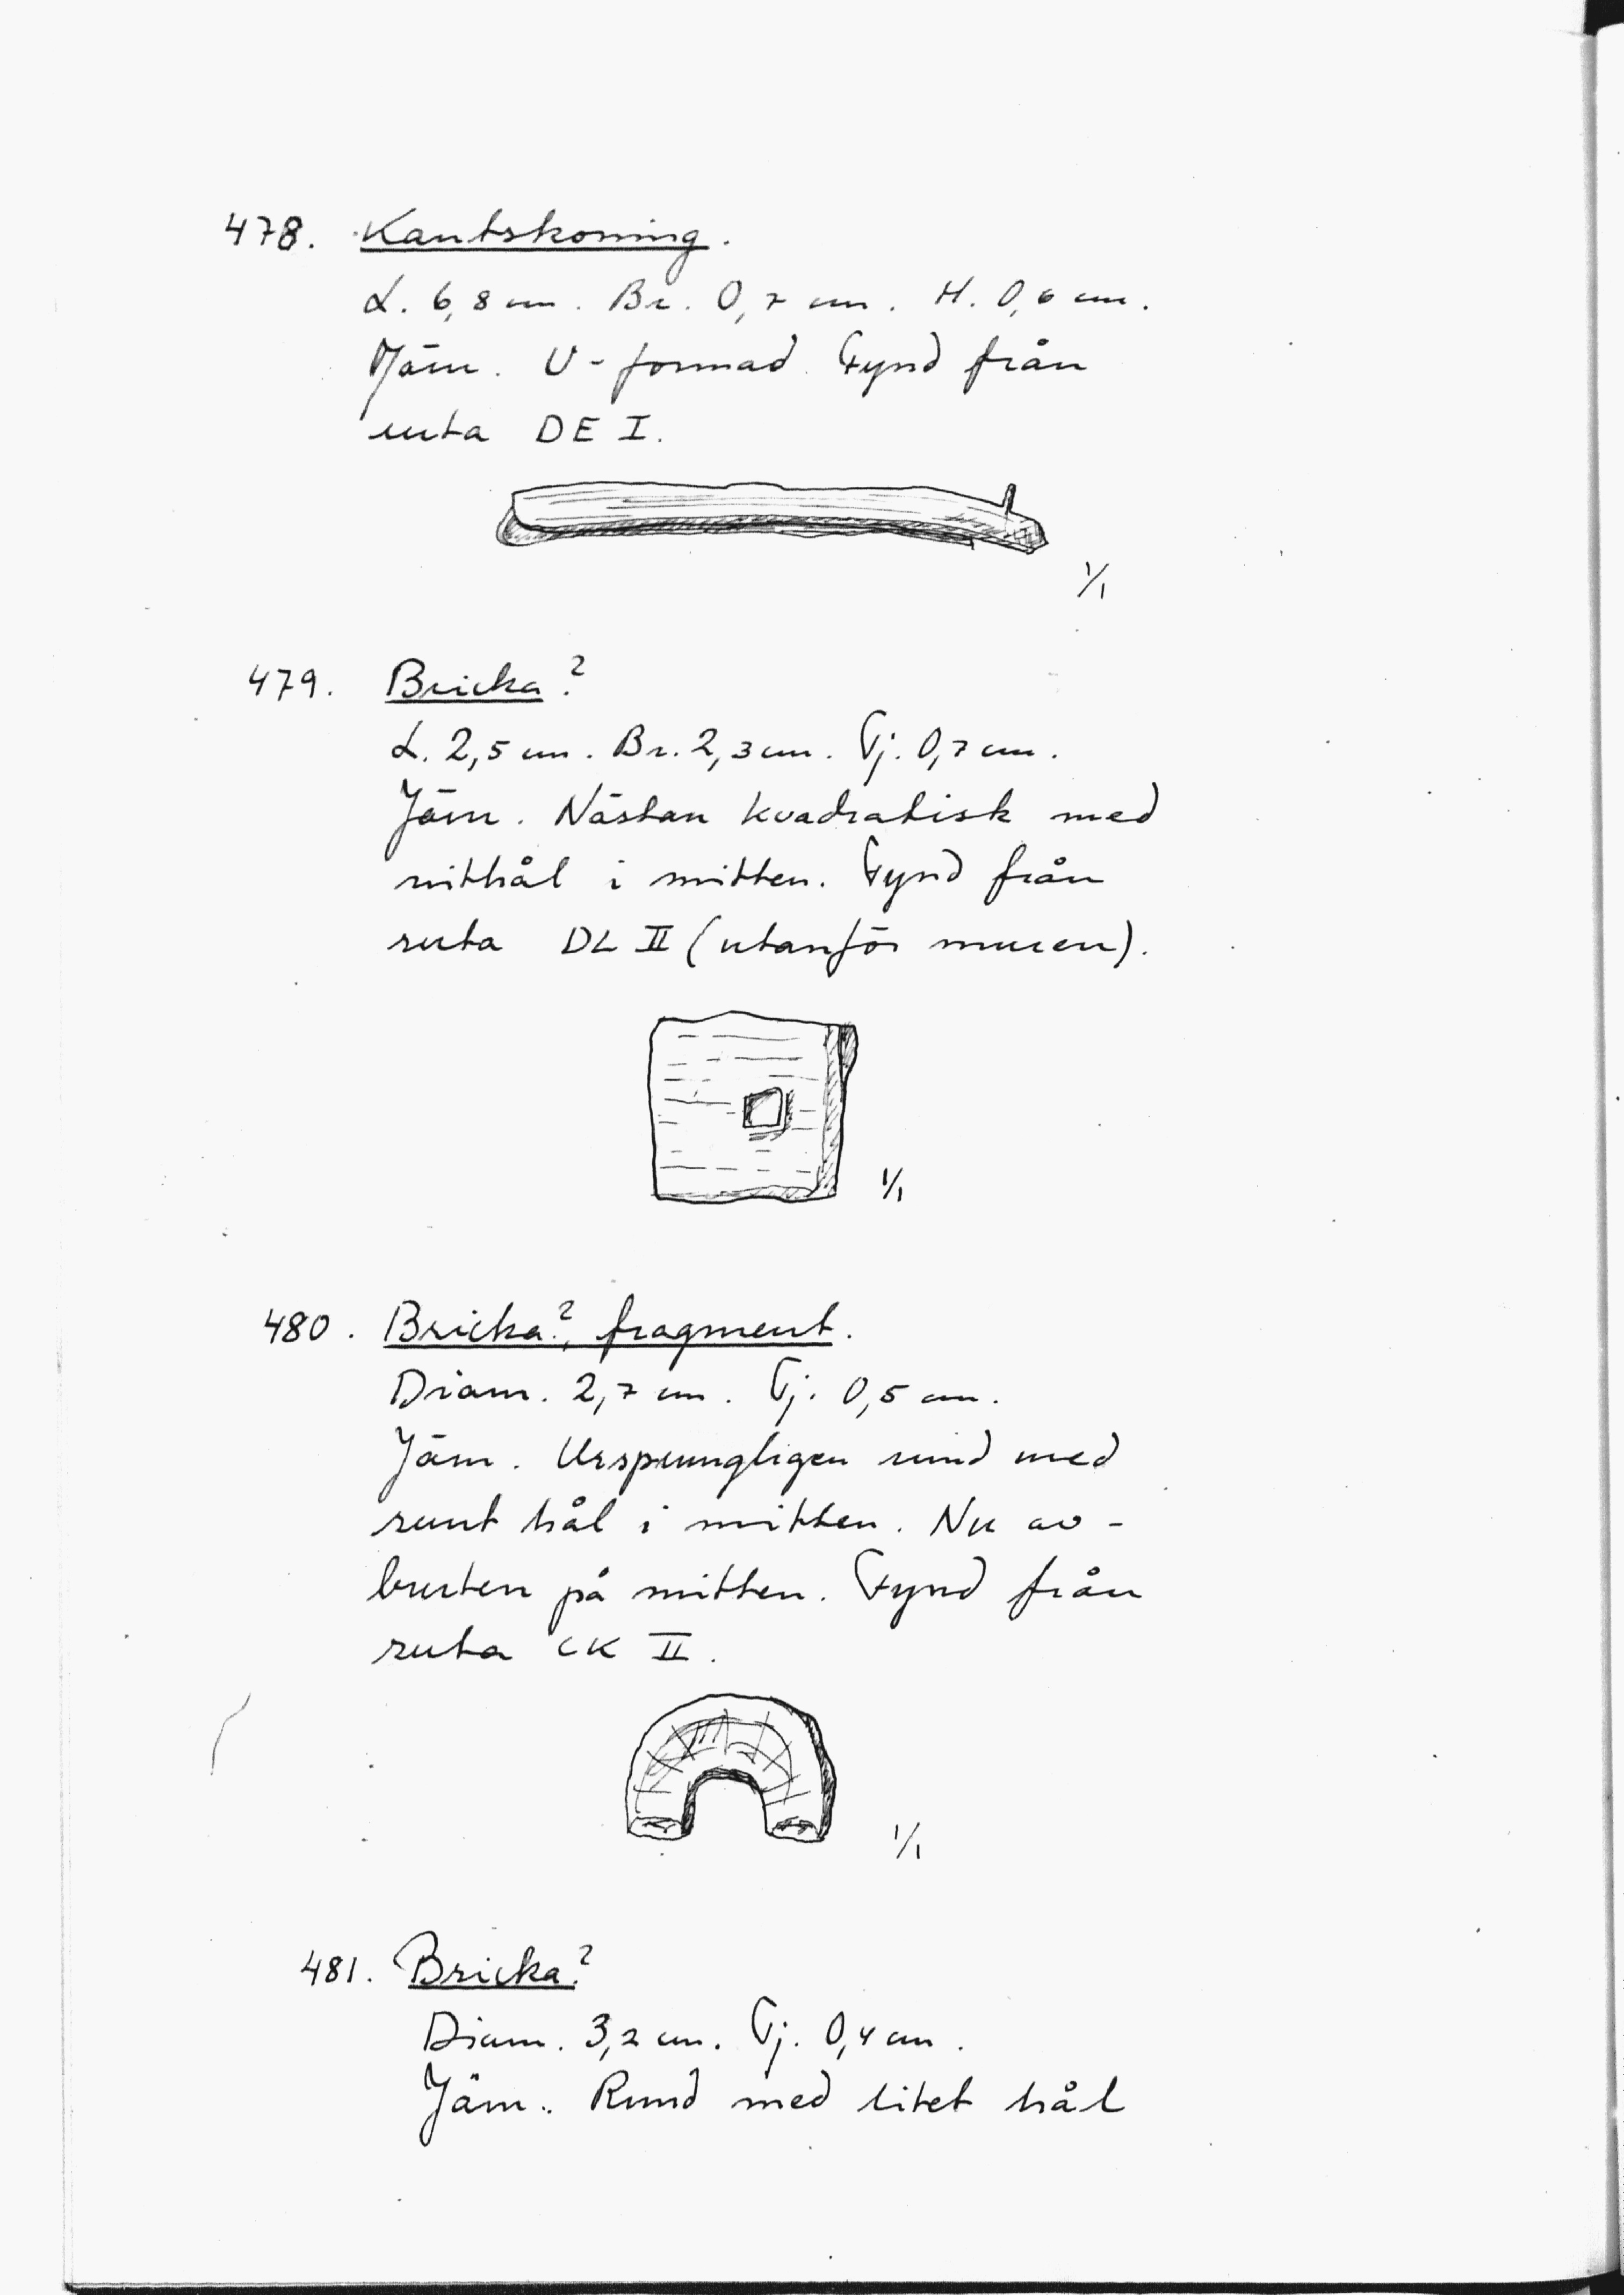 478. Kantskoning.
L. 6,8 cm. Br. 0,7 cm. H. 0,6 cm.
Järn. U-formad. Fynd från
ruta DE I.
1/1
479. Bricka?
L. 2,5 cm. Br. 2,3 cm. Tj. 0,7 cm.
Järn. Nästan kvadratisk med
nithål i mitten. Fynd från
ruta DL II (utanför muren).
1/1
480. Bricka?, fragment.
Diam. 2,7 cm. Tj. 0,5 cm.
Järn. Ursprungligen rund med
runt hål i mitten. Nu av-
bruten på mitten. Fynd från
ruta CK II.
1/1
481. Bricka?
Diam. 3,2 cm. Tj. 0,4 cm.
Järn. Rund med litet hål